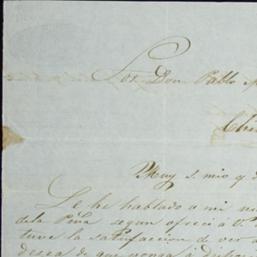 Sor. Don Pablo
Muy s. mio y d
Le he hablado a mi
de la Peña segun ofreci a V.
tuve la satisfaccion de ver
desea de que venga